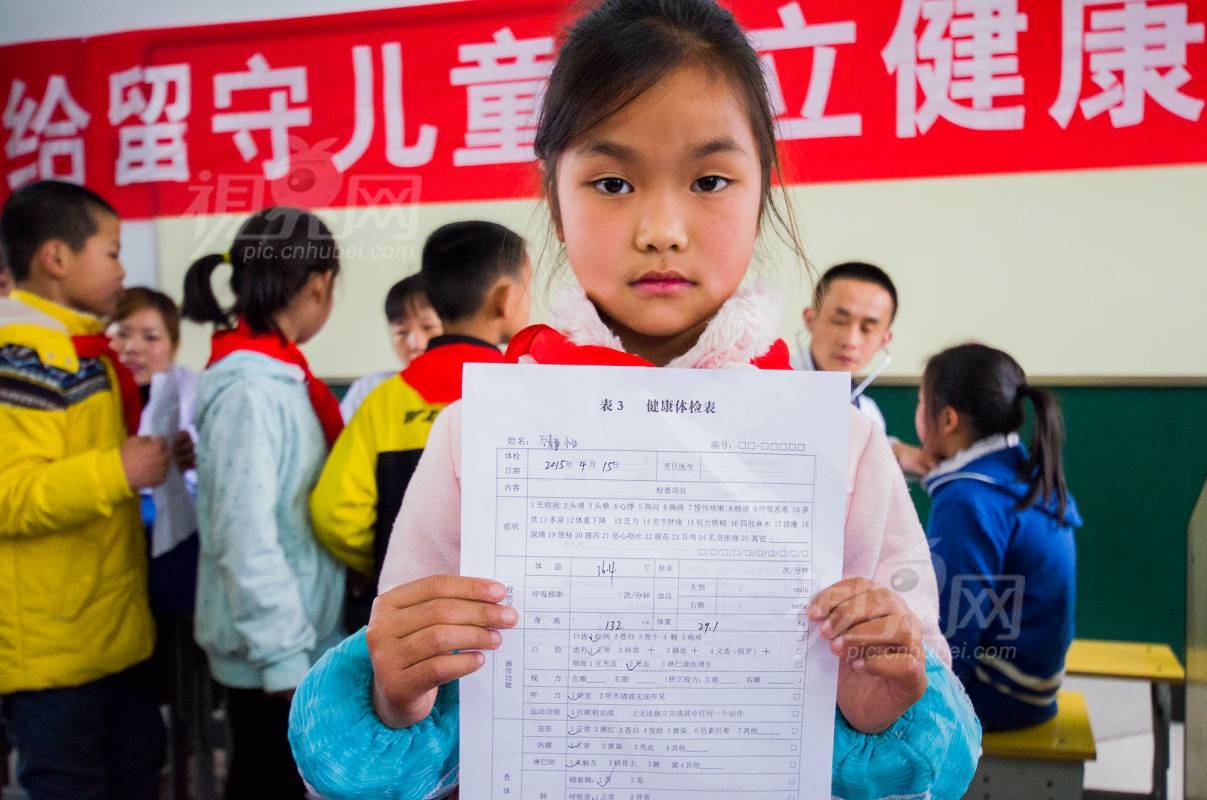 给留守儿童 立健康
视界网
pic.cnhubei.com
表3 健康体检表
姓名: 万静怡 编号: □□-□□□□□
体检日期 2015年4月15日 责任医生
内容 检查项目
症状 1无症状 2头痛 3头晕 4心悸 5胸闷 6胸痛 7慢性咳嗽 8咳痰 9呼吸困难 10多
饮 11多尿 12体重下降 13乏力 14关节肿痛 15视力模糊 16四肢麻木 17消瘦 18
尿痛 19便秘 20腹泻 21恶心呕吐 22眼花 23耳鸣 24乳房胀痛 25其它
□/□/□/□/□/□/□/□
体温 36.4 ℃ 脉率 次/分钟
呼吸频率 次/分钟 血压 左侧 /
右侧 /
身高 132 cm 体重 29.1 Kg
口腔 口唇 1红润 2苍白 3发干 4皲裂 5疱疹 □
齿列 1正常 2缺齿 3龋齿 4义齿(假牙) □
咽部 1无充血 2充血 3淋巴滤泡增生 □
器官功能
视力 左眼 右眼 (矫正视力: 左眼 右眼 )
听力 1听见 2听不清或无法听见 □
运动功能 1可顺利完成 2无法独立完成其中任何一个动作 □
皮肤 1正常 2潮红 3苍白 4发绀 5黄染 6色素沉着 7其他 □
巩膜 1正常 2黄染 3充血 4其他 □
淋巴结 1未触及 2锁骨上 3腋窝 4其他 □
查体
桶状胸: 1否 2是 □
肺 呼吸音: 1正常 2异常 □
视界网
pic.cnhubei.com